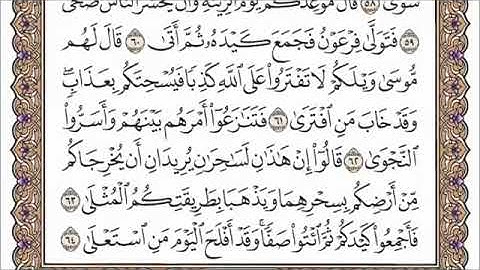 سُوًى ٥٨ قَالَ مَوْعِدُكُمْ يَوْمُ ٱلزِّينَةِ وَأَن يُحْشَرَ ٱلنَّاسُ ضُحًى
٥٩ فَتَوَلَّىٰ فِرْعَوْنُ فَجَمَعَ كَيْدَهُۥ ثُمَّ أَتَىٰ ٦٠ قَالَ لَهُم
مُّوسَىٰ وَيْلَكُمْ لَا تَفْتَرُوا۟ عَلَى ٱللَّهِ كَذِبًا فَيُسْحِتَكُم بِعَذَابٍ ۖ
وَقَدْ خَابَ مَنِ ٱفْتَرَىٰ ٦١ فَتَنَـٰزَعُوٓا۟ أَمْرَهُم بَيْنَهُمْ وَأَسَرُّوا۟
ٱلنَّجْوَىٰ ٦٢ قَالُوٓا۟ إِنْ هَـٰذَٰنِ لَسَـٰحِرَٰنِ يُرِيدَانِ أَن يُخْرِجَاكُم
مِّنْ أَرْضِكُم بِسِحْرِهِمَا وَيَذْهَبَا بِطَرِيقَتِكُمُ ٱلْمُثْلَىٰ ٦٣
فَأَجْمِعُوا۟ كَيْدَكُمْ ثُمَّ ٱئْتُوا۟ صَفًّا ۚ وَقَدْ أَفْلَحَ ٱلْيَوْمَ مَنِ ٱسْتَعْلَىٰ ٦٤